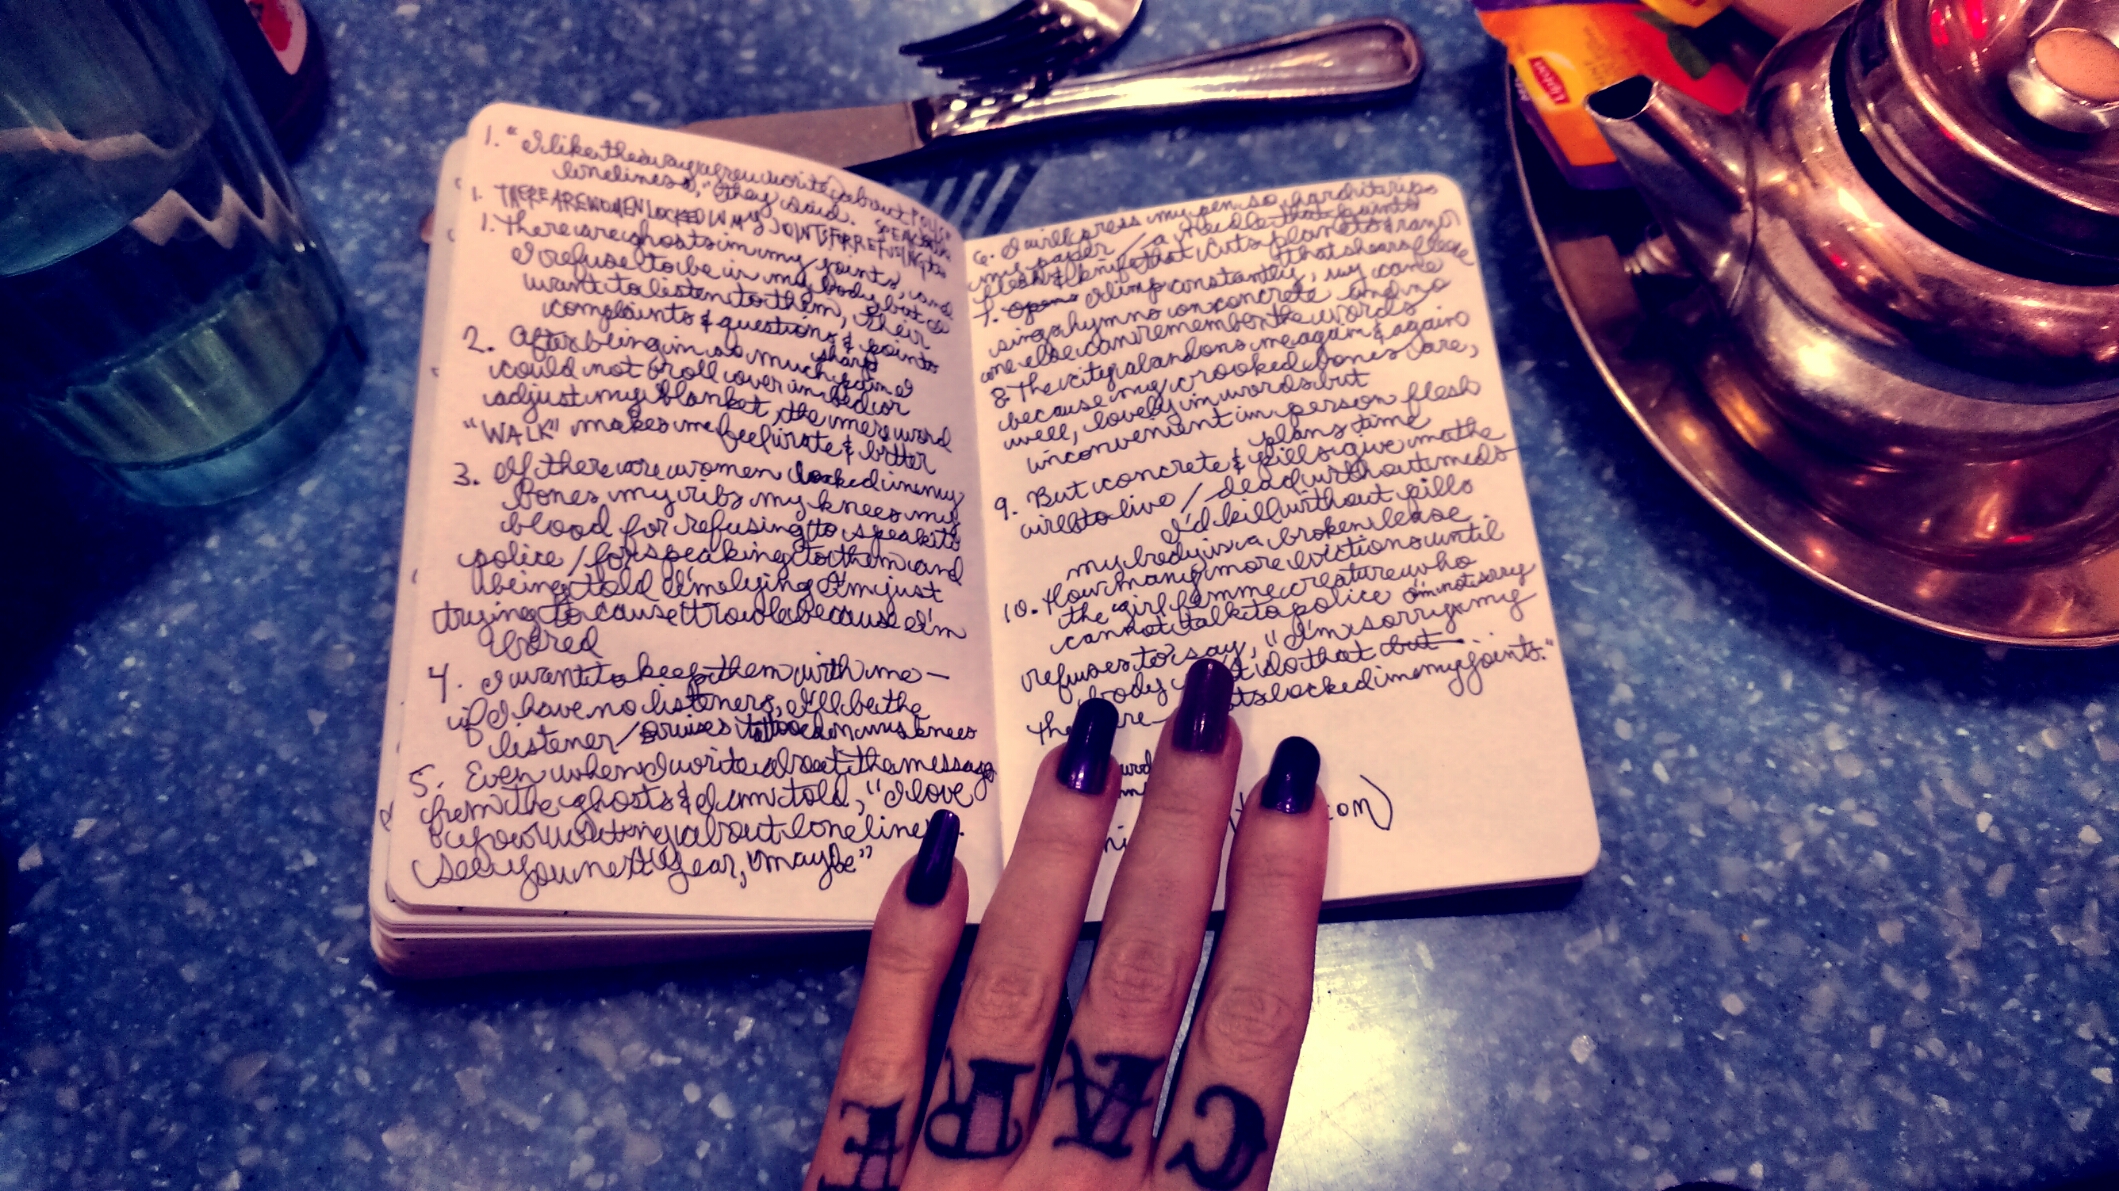 1. "I like the way you write about
loneliness," they said.
1. THERE ARE WOMEN LOCKED IN MY JOINTS FOR REFUSING to
"SPEAK to
POLICE
1. There are ghosts in my joints, and
I refuse to be in my body but I
want to listen to them, their
complaints & questions & points
2. After being in so much sharp pain I
could not roll over in bed or
adjust my blanket, the mere word
"WALK" makes me feel irate & bitter
3. If there are women locked in my
bones my ribs my knees my
blood for refusing to speak to
police / for speaking to them and
being told I'm lying I'm just
trying to cause trouble because I'm
bored
4. I want to keep them with me —
if I have no listeners, I'll be the
listener / bruises tattooed on my knees
5. Even when I write about the message
from the ghosts & I am told, "I love
your writing about
See you next year, maybe"
6. I will press my pen so hard it rips
my paper / a needle that paints
flesh & knife that cuts planets &
that shears fleece
7. I limp constantly, my cane
sings hymns on concrete and no
one else can remember the words
8. The city abandons me again & again
because my crooked bones are,
well, lovely in words but
inconvenient in person flesh
plans time
9. But concrete & pills give me the
will to live / dead without meds
I'd kill without pills
my body is a broken lease
10. How many more evictions until
the girl femme creature who
cannot talk to police I'm not sorry
refuses to say, "I'm sorry my
body do that but
there are locked in my joints."
com)
Lipton
CARE